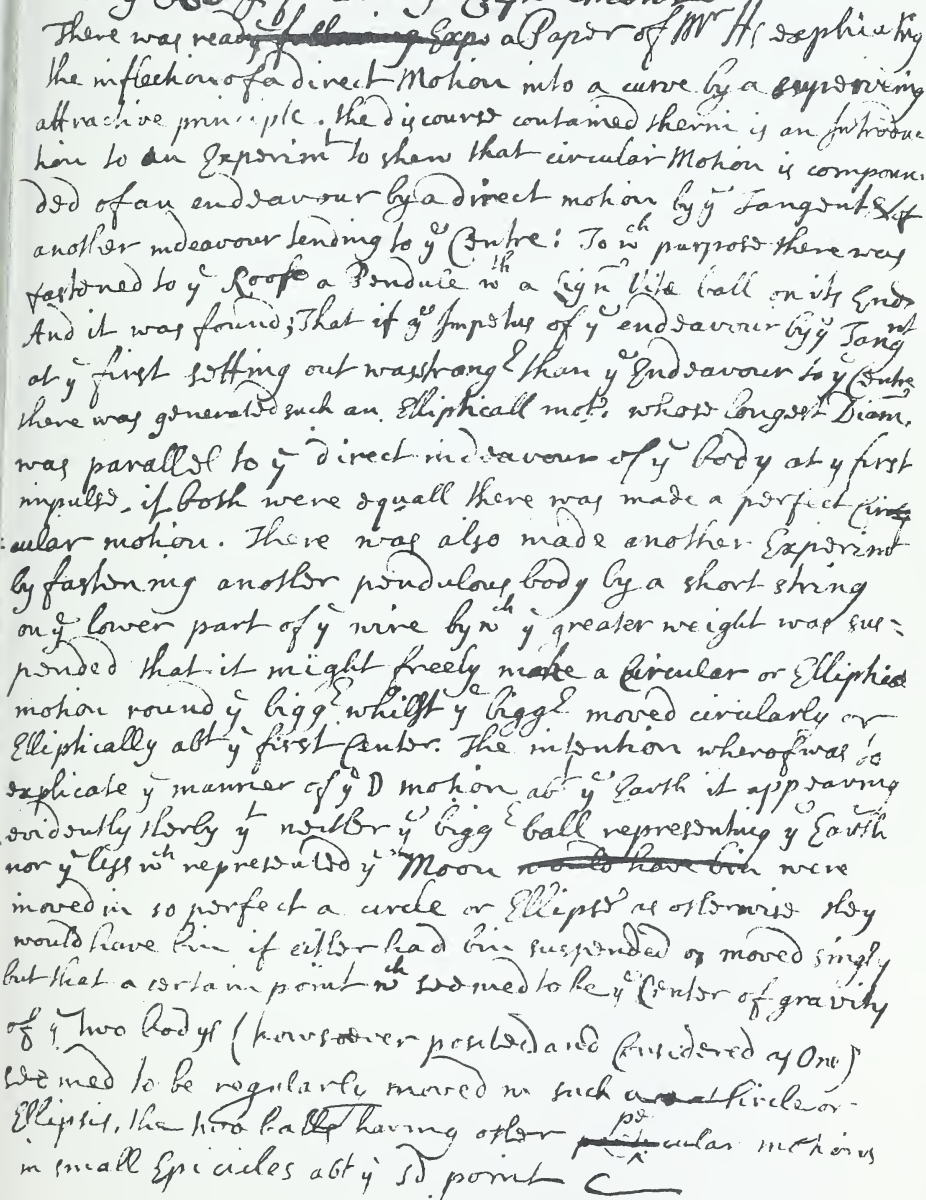 There was read yᵉ following Expe a Paper of Mʳ Hs explicating
the inflection of a direct Motion into a curve by a supervening
attractive principle. the discourse contained therin is an Introduc
tion to an Experimᵗ to shew that circular Motion is compoun:
ded of an endeavour by a direct motion by yᵉ Tangent & of
another indeavour tending to yᵉ Centre: To wᶜʰ purpose there was
fastened to yᵉ Roofe a Pendule wᵗʰ a Lign: Vitæ ball on its End.
And it was found; That if yᵉ Impetus of yᵉ endeavour by yᵉ Tangⁿᵗ
at yᵉ first setting out was strongʳ than yᵉ Endeavour to yᵉ Centre
there was generated such an Ellipticall mot: whose longest Diam.
was parallel to yᵉ direct indeavour of yᵉ body at y first
impulse. if both were equall there was made a perfect Circ
cular motion. There was also made another Experimᵗ
by fastening another pendulous body by a short string
on yᵉ lower part of yᵉ wire by wᶜʰ yᵉ greater weight was sus=
pended that it might freely make a Circular or Elliptice
motion round yᵉ biggʳ whilst yᵉ biggʳ moved circularly or
Elliptically abᵗ yᵉ first Center. The intention wherof was to
explicate yᵉ manner of yᵉ ☽ motion abᵗ yᵉ Earth it appearing
evidently therby yᵗ neither yᵉ biggʳ ball representing yᵉ Earth
nor yᵉ less wᶜʰ represented yᵉ Moon would have bin were
moved in so perfect a circle or Ellipse as otherwise they
would have bin if either had bin suspended or moved singly
but that a certain point wᶜʰ seemed to be yᵉ Center of gravity
of yᵉ two bodys (howsoever posited and Considered as One)
seemed to be regularly moved in such Circle or
Ellipsis. the two balls having other pecular motions
in small Epicicles abᵗ yᵉ sᵈ point